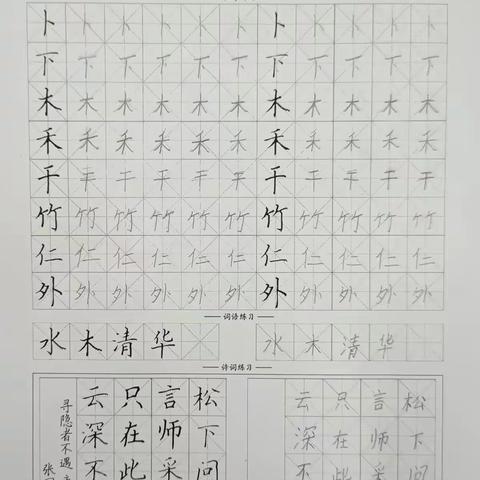 卜卜卜卜卜卜卜卜卜卜卜
下下下下下下下下下下下
木木木木木木木木木木木
禾禾禾禾禾禾禾禾禾禾禾
干干干干干干干干干干干
竹竹竹竹竹竹竹竹竹竹竹
仁仁仁仁仁仁仁仁仁仁仁
外外外外外外外外外外外
词语练习
水木清华 水木清华
诗词练习
松下问
言师采
只在此
云深不
寻隐者不遇
张
松下问
言师采
只在此
云深不